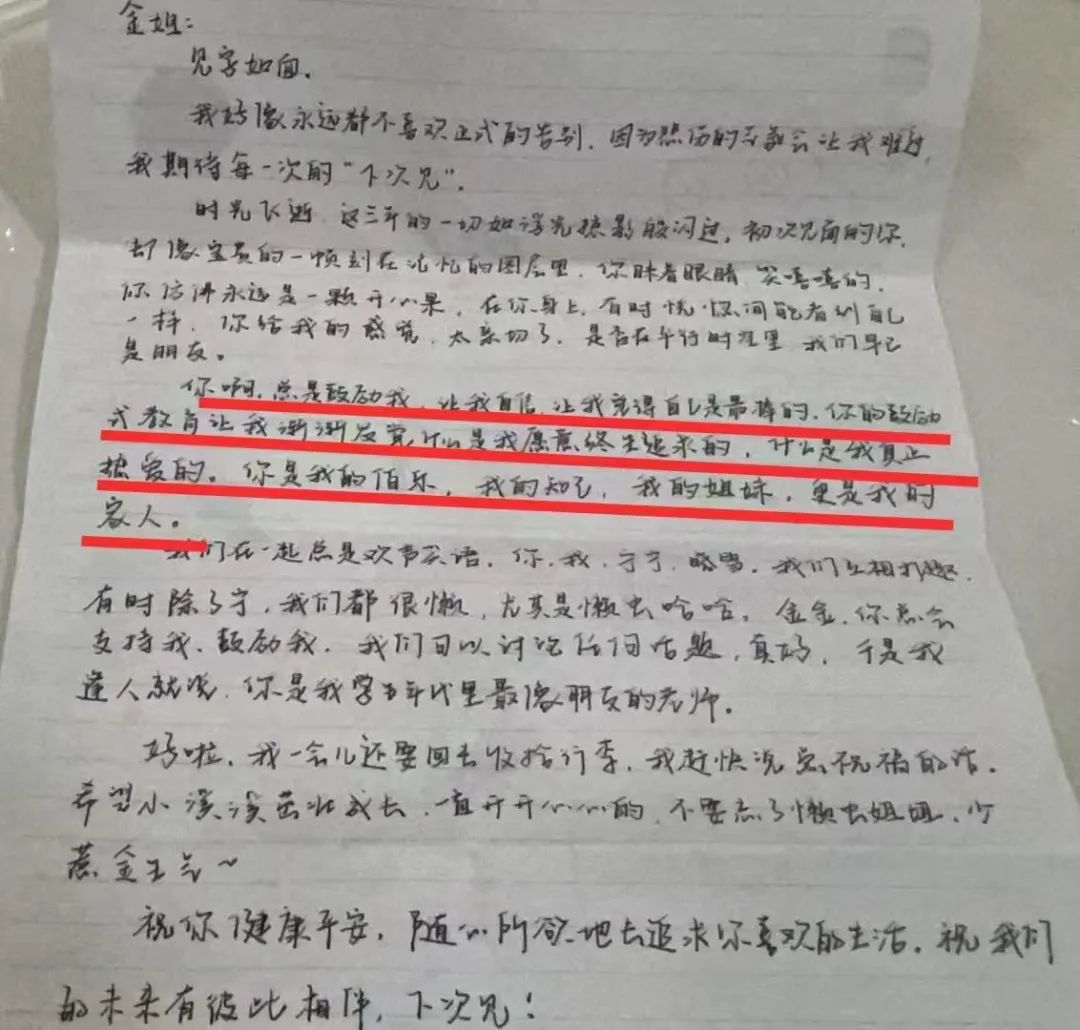 金姐：
见字如面。
我好像永远都不喜欢正式的告别，因为煽情的気氛会让我难过，
我期待每一次的“下次见”。
时光飞逝，这三年的一切如浮光掠影般闪过，初次见面的你，
却像宝贵的一帧刻在记忆的图层里，你眯着眼睛，笑嘻嘻的，
你仿佛永远是一颗开心果，在你身上，有时恍惚间能看到自己
一样，你给我的感觉，太亲切了，是否在平行时空里我们早已
是朋友。
你啊，总是鼓励我，让我自信，让我觉得自己是最棒的，你的鼓励
式教育让我渐渐发觉什么是我愿意终生追求的，什么是我真正
热爱的。你是我的伯乐，我的知己，我的姐妹，更是我的
家人。
我们在一起总是欢声笑语，你，我，宁宁，晓雪，我们互相打趣，
有时除了宁，我们都很懒，尤其是懒虫哈哈。金金，你总会
支持我、鼓励我，我们可以讨论任何话题，真好，于是我
逢人就说，你是我学生年代里最像朋友的老师。
好啦，我一会儿还要回去收拾行李，我赶快说完祝福的话。
希望小溪溪茁壮成长，一直开开心心的，不要忘了懒虫姐姐，少
惹金生气~
祝你健康平安，随心所欲地去追求你喜欢的生活，祝我们
的未来有彼此相伴，下次见！